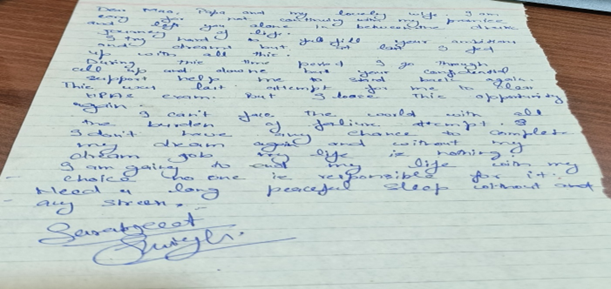 Dear Maa, Papa and my lovely wife. I am
sorry for not continuing with my promise
and left you alone in between the
journey of life.
I try hard to fulfill your ambition
and dreams but at last I fed
up with all this.
During this time period I go through
up and down but your
support help me to stand back again.
This was last attempt for me to clear
exam. But I loose this opportunity
again.
I can't face the world with all
the burden of failure attempt. I
don't have any chance to complete
my dream again and without my
dream job my life is nothing.
I am going to end my life with my
choice no one is responsible for it.
Need a long peaceful sleep without
any stress.
Sarabjeet
Singh.